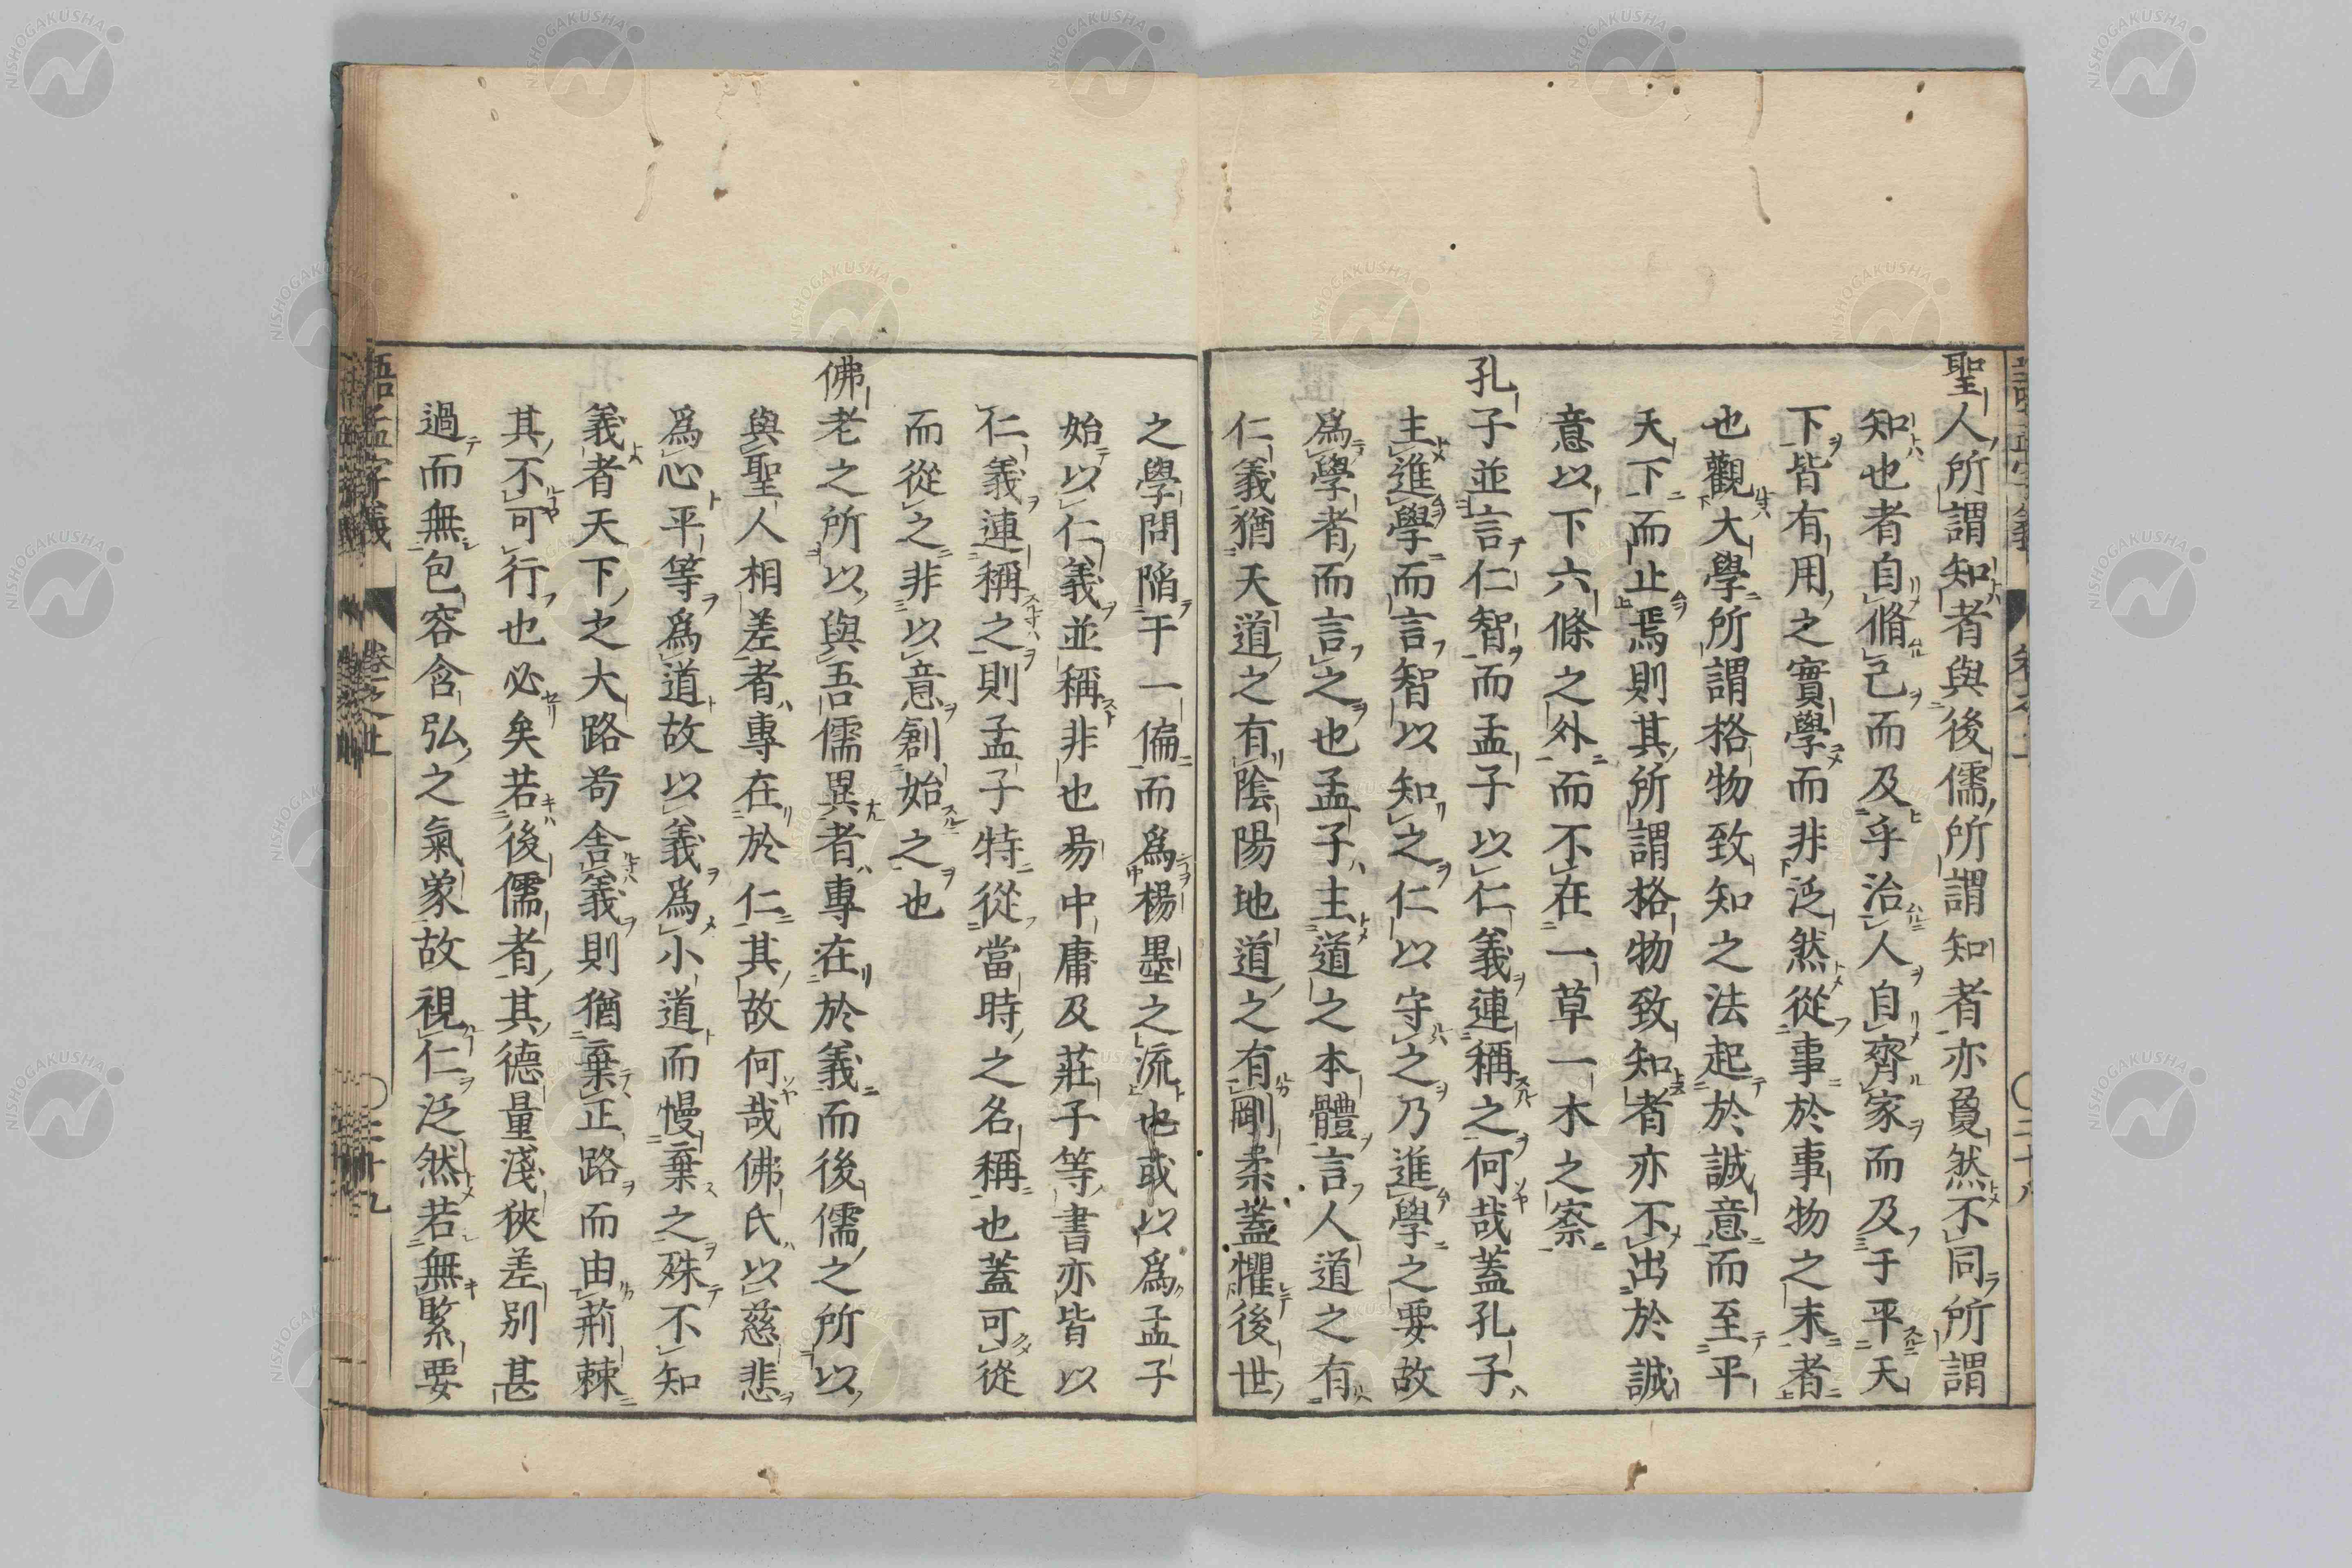 聖人所謂知者與後儒所謂知者亦夐然不同所謂
知也者自脩己而及乎治人自齊家而及于平天
下皆有用之實學而非泛然從事於事物之末者
也觀大學所謂格物致知之法起於誠意而至平
天下而止焉則其所謂格物致知者亦不出於誠
意以下六條之外而不在一草一木之察
孔子並言仁智而孟子以仁義連稱之何哉蓋孔子
主進學而言智以知之仁以守之乃進學之要故
爲學者而言之也孟子主道之本體言人道之有
仁義猶天道之有陰陽地道之有剛柔蓋懼後世
之學問陷于一偏而爲楊墨之流也或以爲孟子
始以仁義並稱非也易中庸及莊子等書亦皆以
仁義連稱之則孟子特從當時之名稱也蓋可從
而從之非以意創始之也
佛老之所以與吾儒異者專在於義而後儒之所以
與聖人相差者專在於仁其故何哉佛氏以慈悲
爲心平等爲道故以義爲小道而慢棄之殊不知
義者天下之大路苟舍義則猶棄正路而由荊棘
其不可行也必矣若後儒者其德量淺狹差別甚
過而無包容含弘之氣象故視仁泛然若無緊要
語孟字義 卷之上 ○三十九
NISHOGAKUSHA